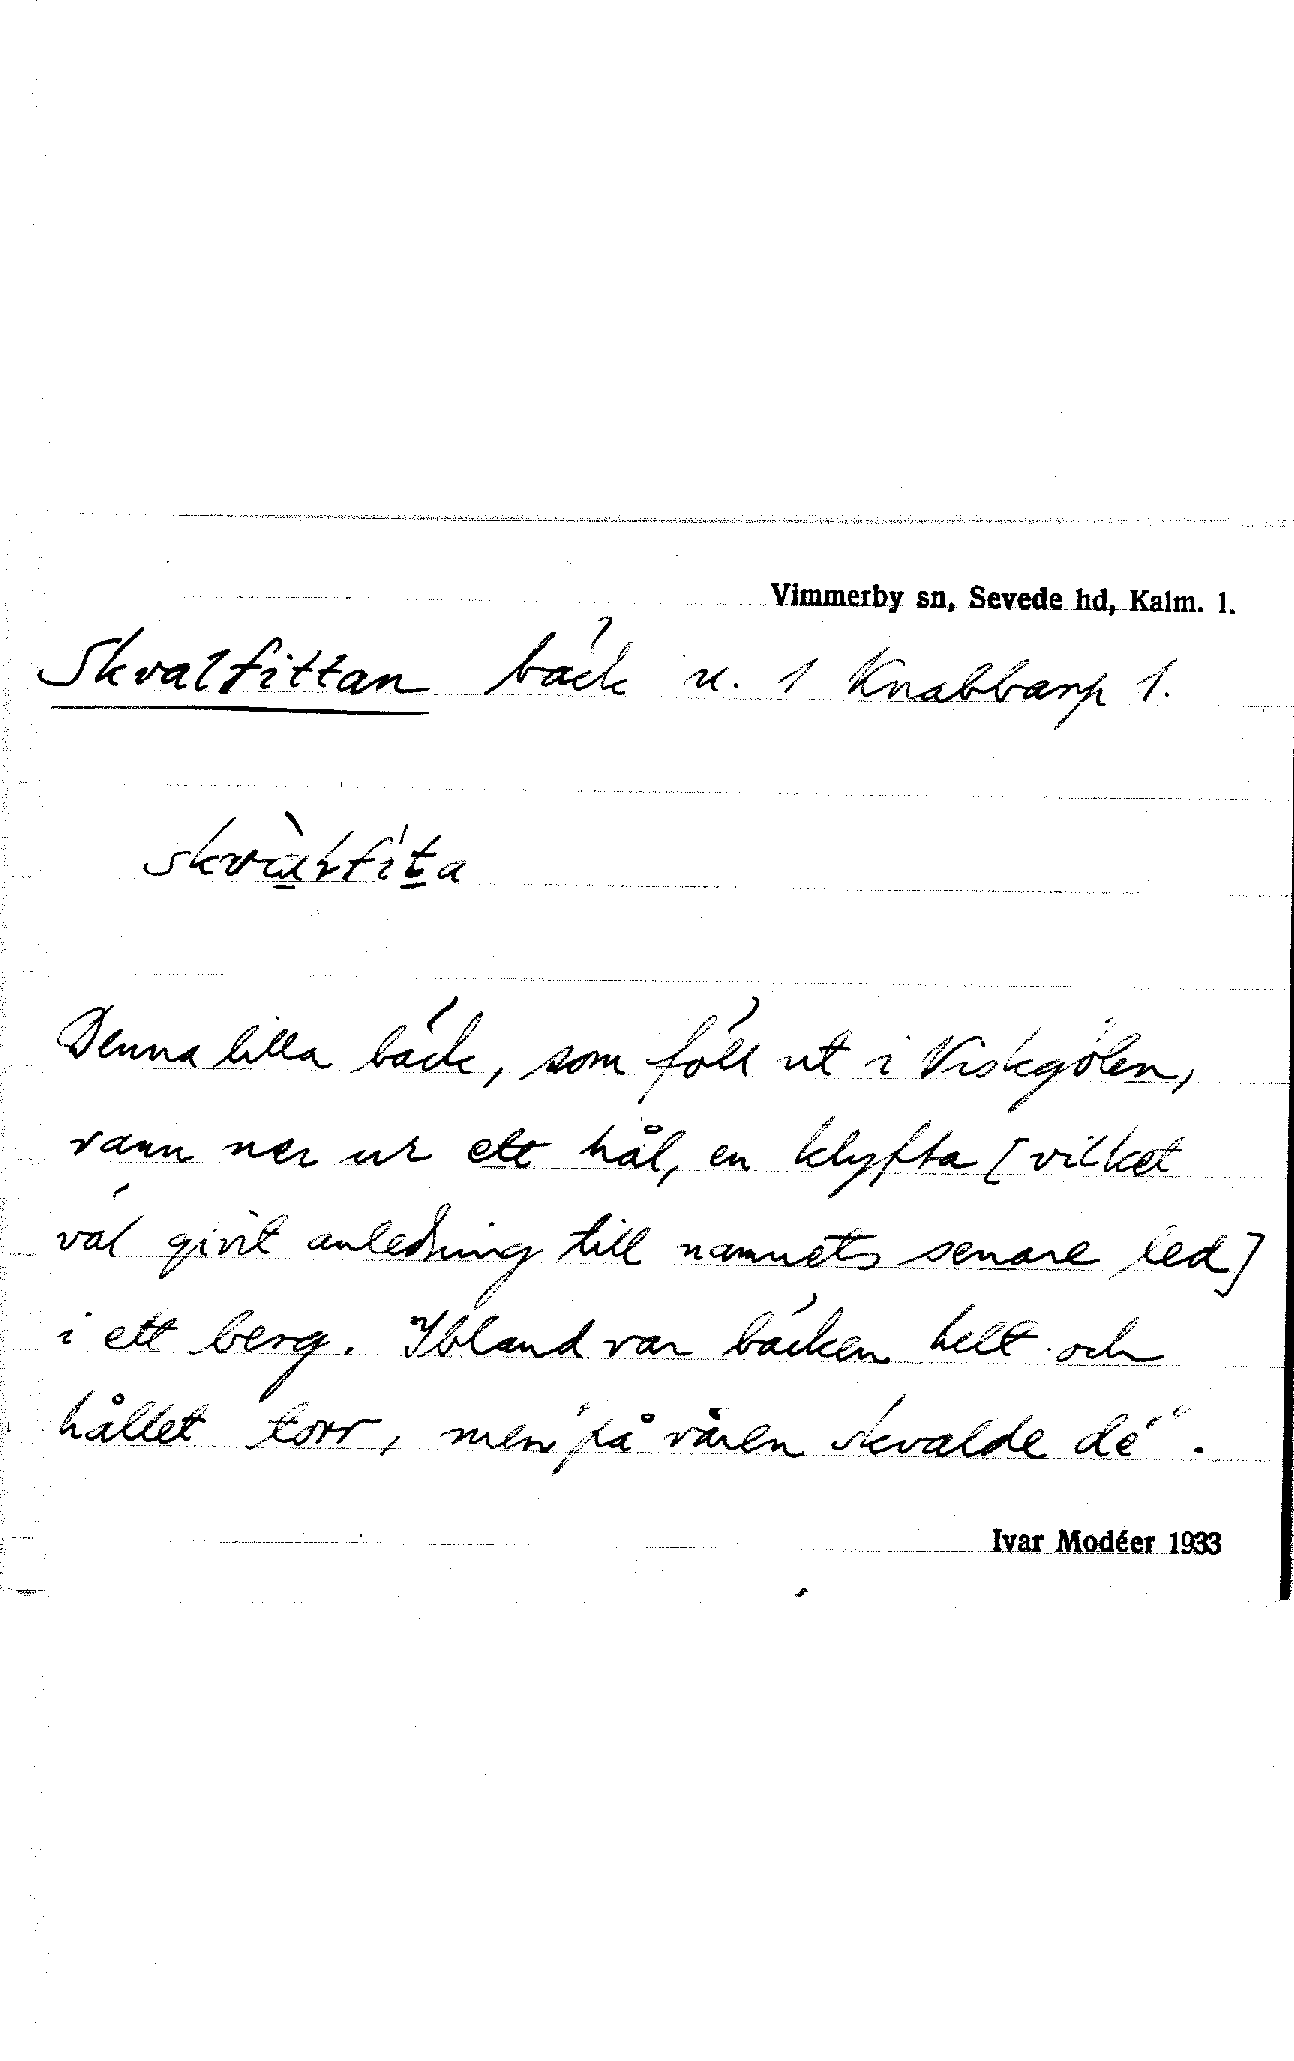 Vimmerby sn, Sevede hd, Kalm. l.
Skvalfittan bäck u. 1 Knabbarp 1.
Denna lilla bäck, som föll ut i Viskgölen,
rann ner ur ett hål, en klyfta [vilket
väl givit anledning till namnets senare led]
i ett berg. Ibland var bäcken helt och
hållet torr, men "på våren skvalde dé".
Ivar Modéer 1933